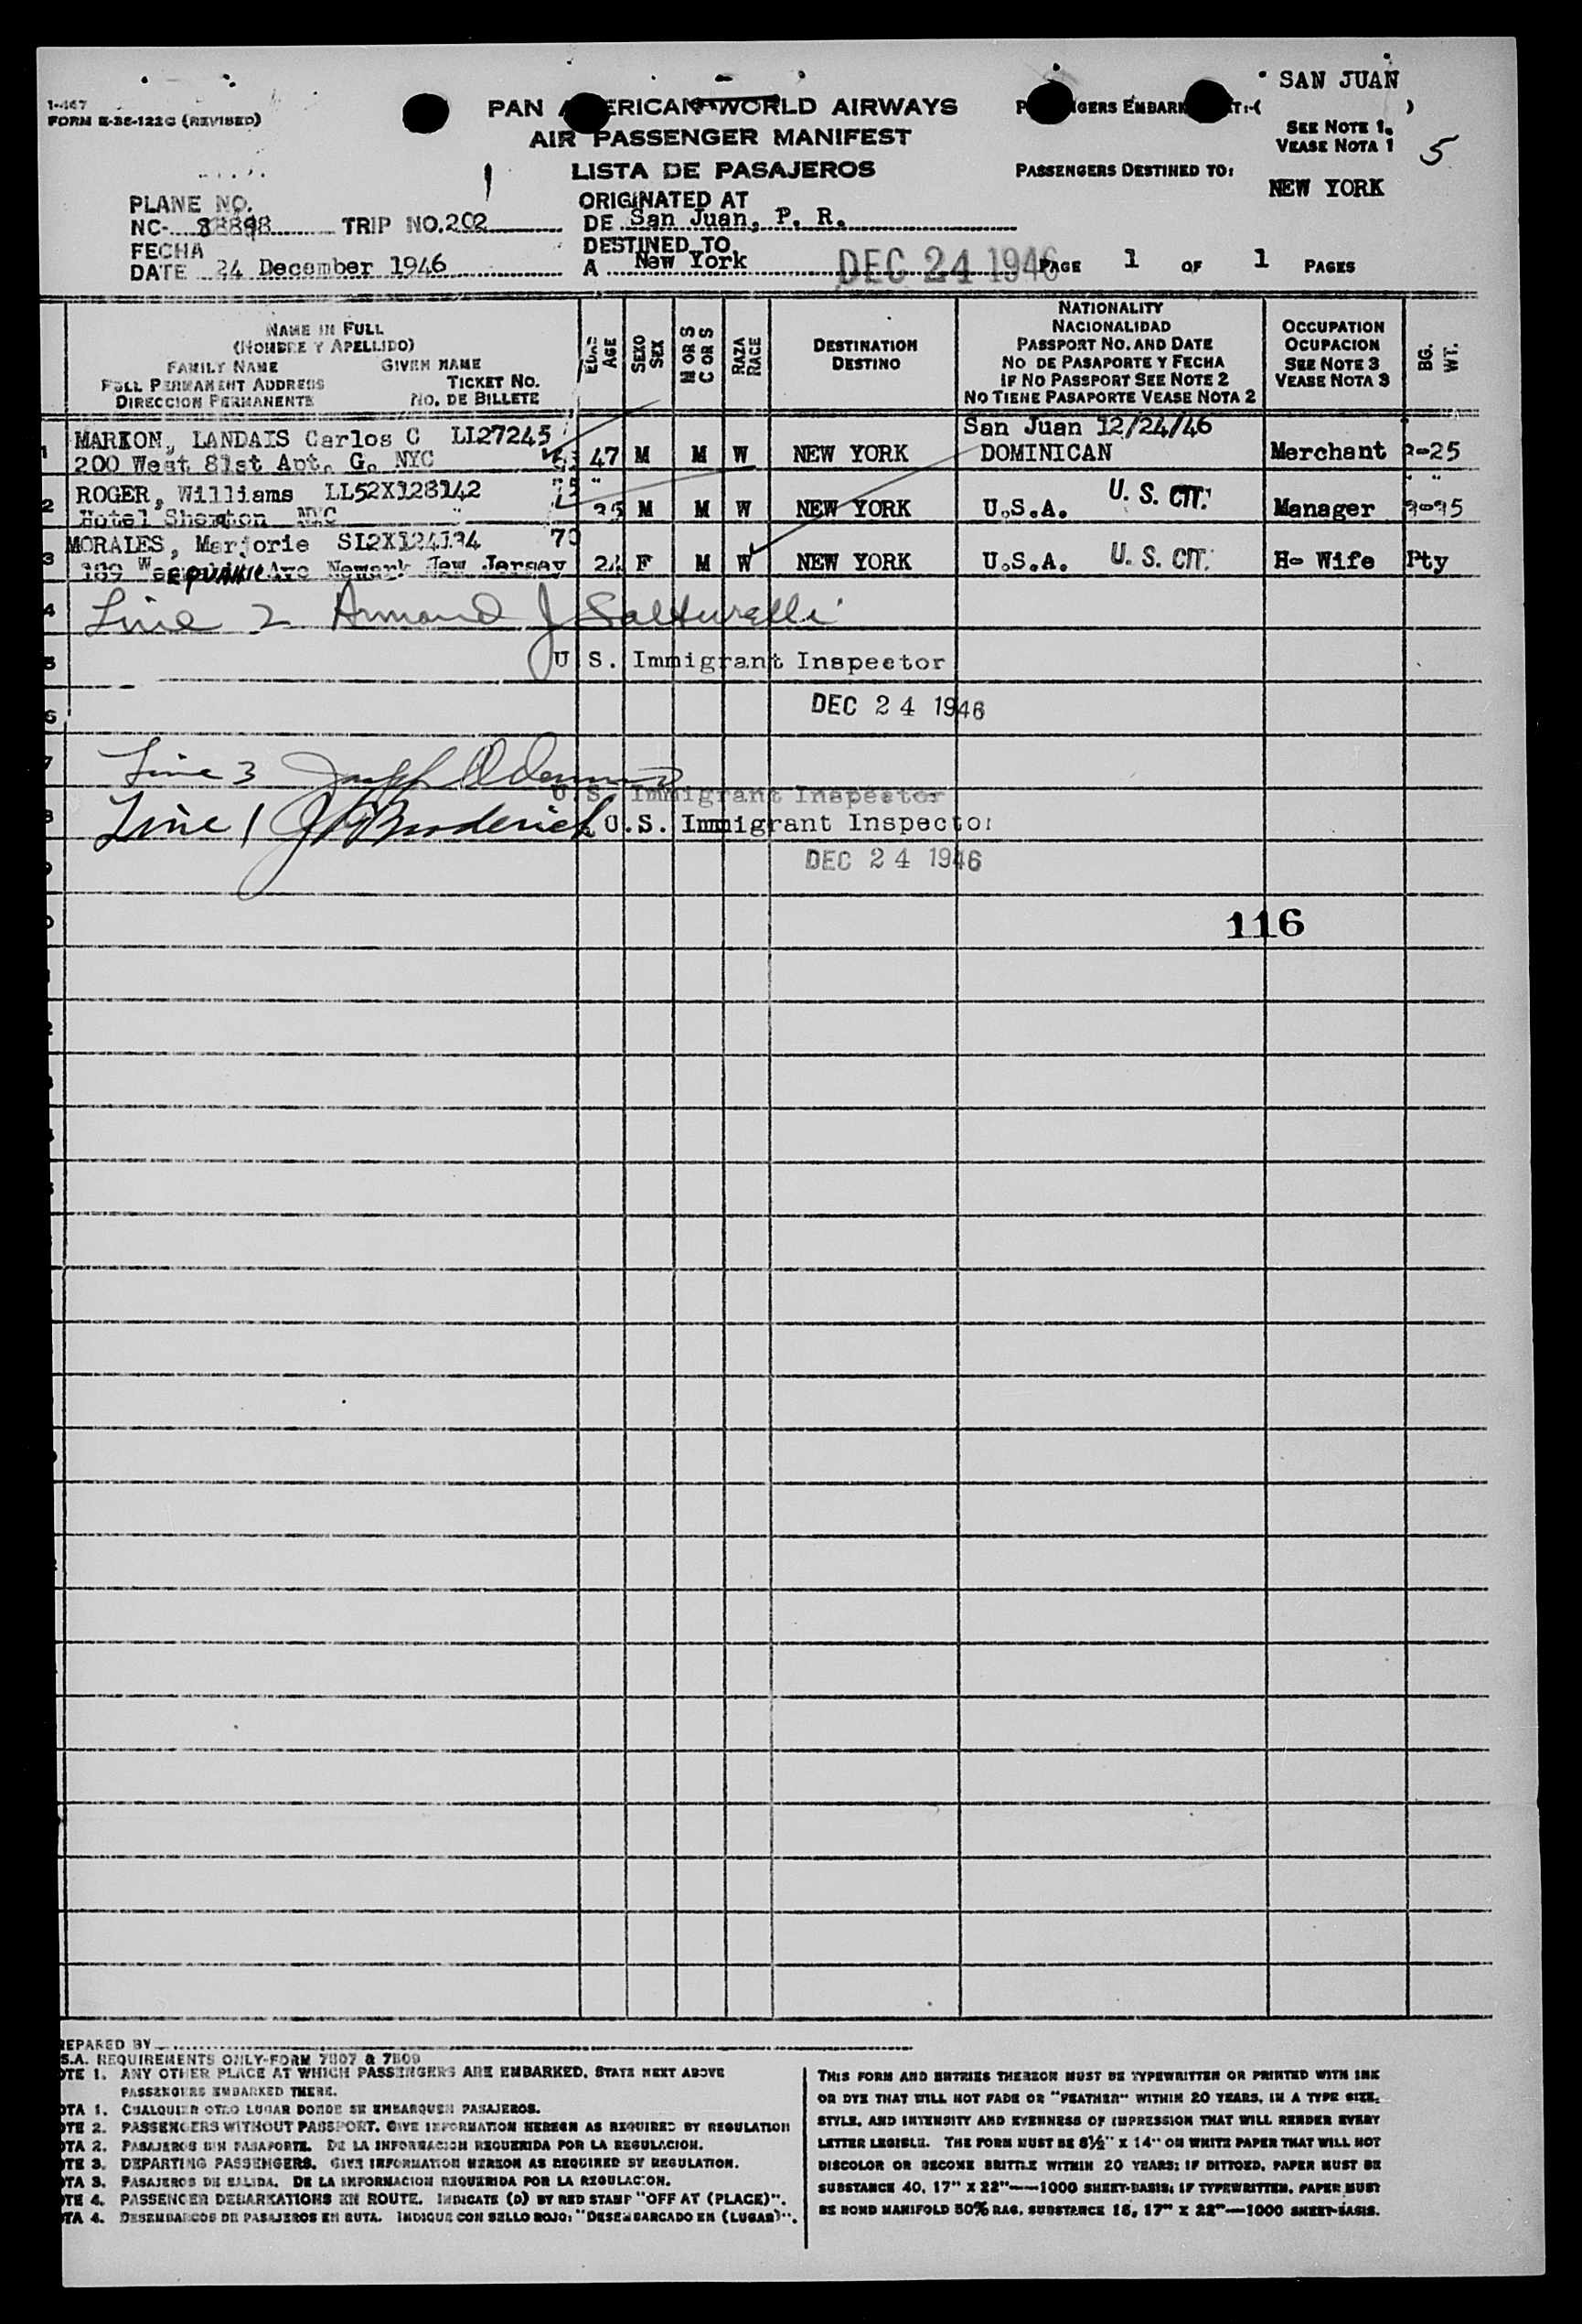 1-467
FORM E-36-122G (REVISED)
PAN AMERICAN WORLD AIRWAYS
AIR PASSENGER MANIFEST
LISTA DE PASAJEROS
SAN JUAN
SEE NOTE 1.
VEASE NOTA 1
5
PASSENGERS DESTINED TO:
NEW YORK
PLANE NO.
NC- 88898 TRIP NO. 202
FECHA
DATE 24 December 1946
ORIGINATED AT
DE San Juan, P. R.
DESTINED TO
A New York
DEC 24 1946
PAGE 1 OF 1 PAGES
NAME IN FULL
(NOMBRE Y APELLIDO)
FAMILY NAME GIVEN NAME
FULL PERMANENT ADDRESS TICKET NO.
DIRECCION PERMANENTE NO. DE BILLETE
EDAD
AGE
SEXO
SEX
M OR S
C OR S
RAZA
RACE
DESTINATION
DESTINO
NATIONALITY
NACIONALIDAD
PASSPORT NO. AND DATE
NO DE PASAPORTE Y FECHA
IF NO PASSPORT SEE NOTE 2
NO TIENE PASAPORTE VEASE NOTA 2
OCCUPATION
OCUPACION
SEE NOTE 3
VEASE NOTA 3
BG.
WT.
San Juan 12/24/46
1 MARION, LANDAIS Carlos C LL27245
200 West 81st Apt. G. NYC 47 M M W NEW YORK DOMINICAN Merchant 2-25
2 ROGER, Williams LL52X128142
Hotel Sheraton NYC 35 M M W NEW YORK U.S.A. U. S. CIT. Manager
3 MORALES, Marjorie SI2X124194 70
Ave Newark New Jersey 24 F M W NEW YORK U.S.A. U. S. CIT. H- Wife Pty
4 Line 2 Armand J Salturelli
5 U S. Immigrant Inspector
6 DEC 24 1946
7 Line 3 Joseph
U. S. Immigrant Inspector
8 Line 1 Broderick U.S. Immigrant Inspector
DEC 24 1946
116
PREPARED BY
U.S.A. REQUIREMENTS ONLY-FORM 7507 & 7509
NOTE 1. ANY OTHER PLACE AT WHICH PASSENGERS ARE EMBARKED, STATE NEXT ABOVE
PASSENGERS EMBARKED THERE.
NOTA 1. CUALQUIER OTRO LUGAR DONDE SE EMBARQUEN PASAJEROS.
NOTE 2. PASSENGERS WITHOUT PASSPORT. GIVE INFORMATION HEREON AS REQUIRED BY REGULATION
NOTA 2. PASAJEROS SIN PASAPORTE. DE LA INFORMACION REQUERIDA POR LA REGULACION.
NOTE 3. DEPARTING PASSENGERS. GIVE INFORMATION HEREON AS REQUIRED BY REGULATION.
NOTA 3. PASAJEROS DE SALIDA. DE LA INFORMACION REQUERIDA POR LA REGULACION.
NOTE 4. PASSENGER DEBARKATIONS EN ROUTE. INDICATE (D) BY RED STAMP "OFF AT (PLACE)".
NOTA 4. DESEMBARCOS DE PASAJEROS EN RUTA. INDIQUE CON SELLO ROJO: "DESEMBARCADO EN (LUGAR)".
THIS FORM AND ENTRIES THEREON MUST BE TYPEWRITTEN OR PRINTED WITH INK
OR DYE THAT WILL NOT FADE OR "FEATHER" WITHIN 20 YEARS, IN A TYPE SIZE,
STYLE, AND INTENSITY AND EVENNESS OF IMPRESSION THAT WILL RENDER EVERY
LETTER LEGIBLE. THE FORM MUST BE 8½" X 14" ON WHITE PAPER THAT WILL NOT
DISCOLOR OR BECOME BRITTLE WITHIN 20 YEARS; IF DITTOED, PAPER MUST BE
SUBSTANCE 40, 17" X 22"——1000 SHEET-BASIS; IF TYPEWRITTEN, PAPER MUST
BE BOND MANIFOLD 50% RAG, SUBSTANCE 16, 17" X 22"—1000 SHEET-BASIS.